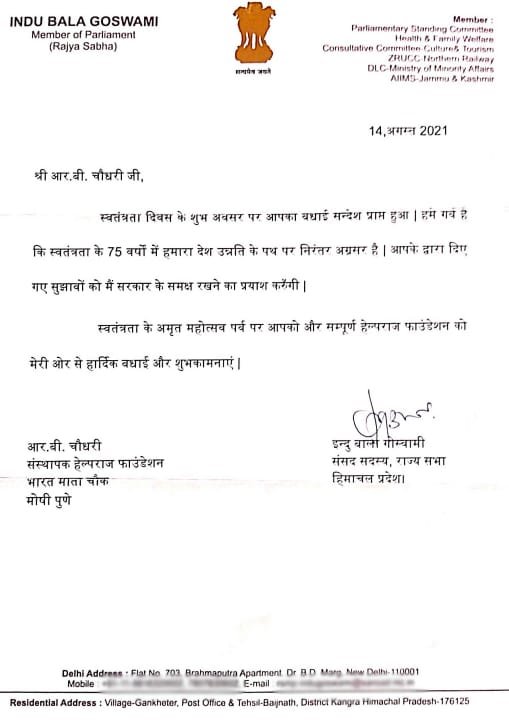 INDU BALA GOSWAMI
Member of Parliament
(Rajya Sabha)
सत्यमेव जयते
Member :
Parliamentary Standing Committee
Health & Family Welfare
Consultative Committee-Culture& Tourism
ZRUCC-Northern Railway
DLC-Ministry of Minority Affairs
AIIMS-Jammu & Kashmir
14,अगस्त 2021
श्री आर.बी. चौधरी जी,
स्वतंत्रता दिवस के शुभ अवसर पर आपका बधाई सन्देश प्राप्त हुआ | हमे गर्व है
कि स्वतंत्रता के 75 वर्षो में हमारा देश उन्नति के पथ पर निरंतर अग्रसर है | आपके द्वारा दिए
गए सुझावों को मैं सरकार के समक्ष रखने का प्रयाश करुँगी |
स्वतंत्रता के अमृत महोत्सव पर्व पर आपको और सम्पूर्ण हेल्पराज फाउंडेशन को
मेरी ओर से हार्दिक बधाई और शुभकामनाएं |
इन्दु बाला गोस्वामी
संसद सदस्य, राज्य सभा
हिमाचल प्रदेश।
आर.बी. चौधरी
संस्थापक हेल्पराज फाउंडेशन
भारत माता चौक
मोषी पुणे
Delhi Address : Flat No. 703, Brahmaputra Apartment, Dr. B.D. Marg, New Delhi-110001
Mobile : E-mail
Residential Address : Village-Gankheter, Post Office & Tehsil-Baijnath, District Kangra Himachal Pradesh-176125